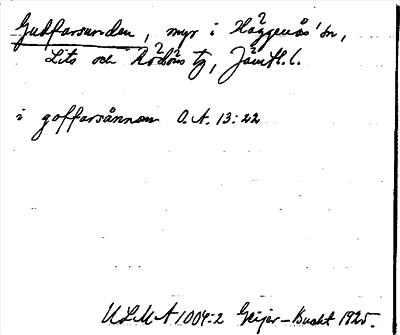 Gudfarsunden, myr i Häggenås' sn,
Lits och Rödöns tg, Jämtl. l.
i goffarsånnen O.A. 13:22
ULMA 1004:2 Geijer-Bucht 1925.